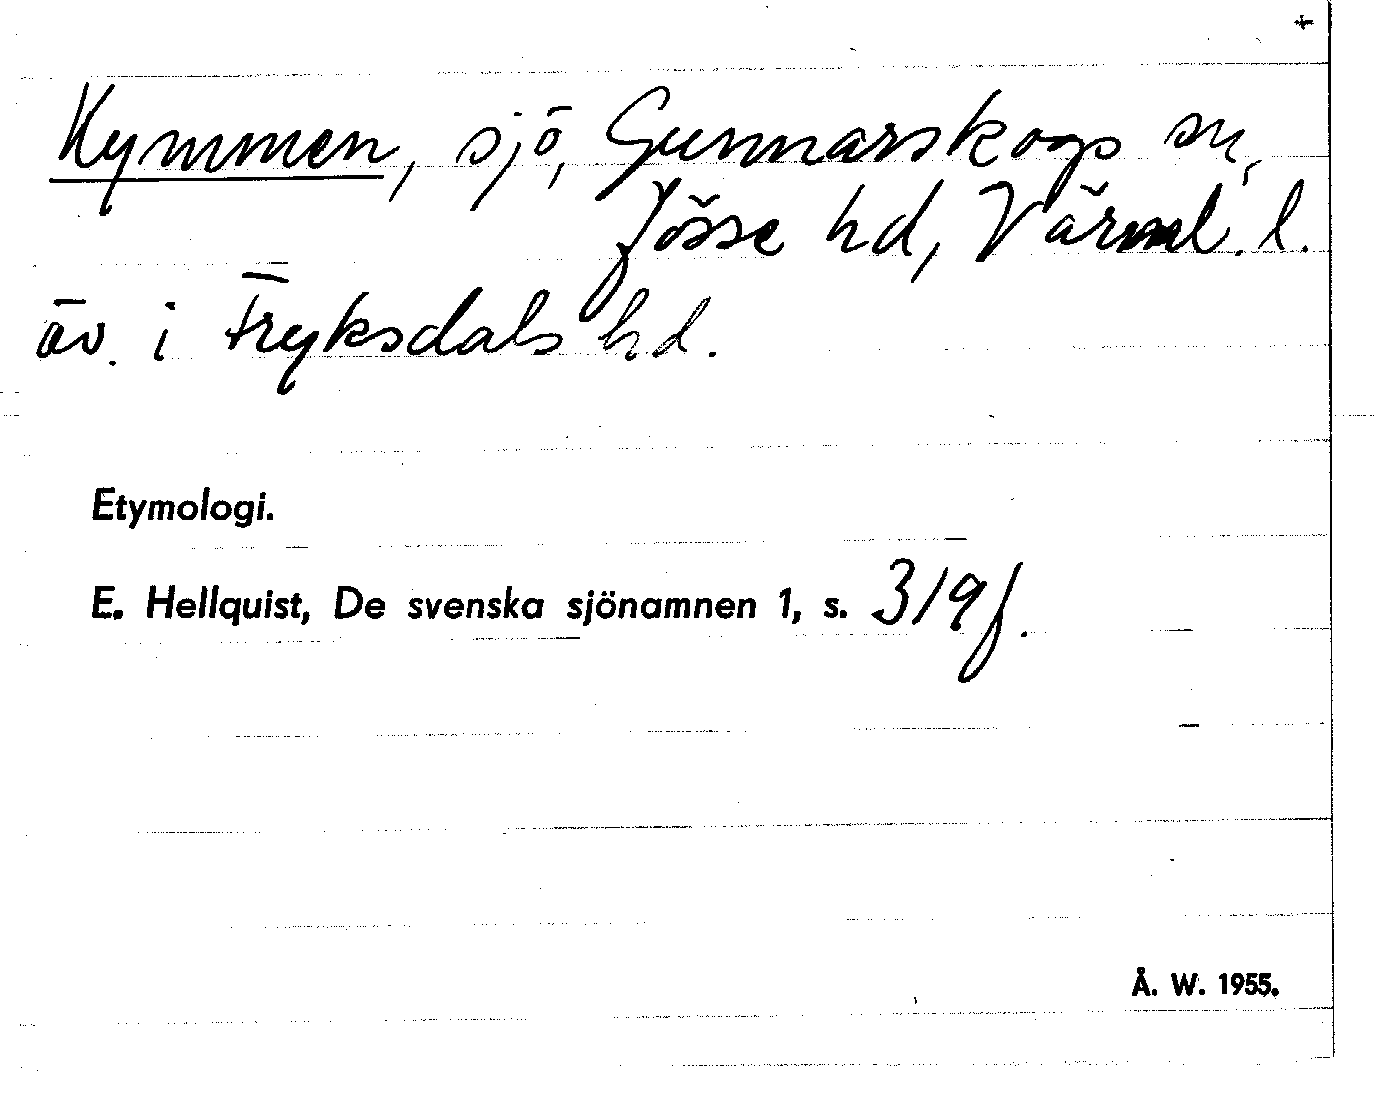 +
Kymmen, sjö, Gunnarskogs sn,
Jösse hd, Värml. l.
äv. i Fryksdals hd.
Etymologi.
E. Hellquist, De svenska sjönamnen 1, s. 319 f.
Å. W. 1955.